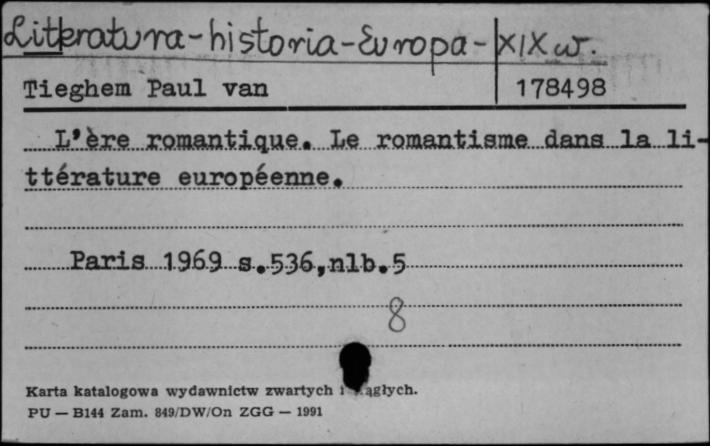 Literatura-historia-Europa-XIX w.
Tieghem Paul van 178498
L'ère romantique. Le romantisme dans la li-
ttérature européenne.
Paris 1969 s.536,nlb.5
8
Karta katalogowa wydawnictw zwartych i
PU — B144 Zam. 849/DW/On ZGG — 1991